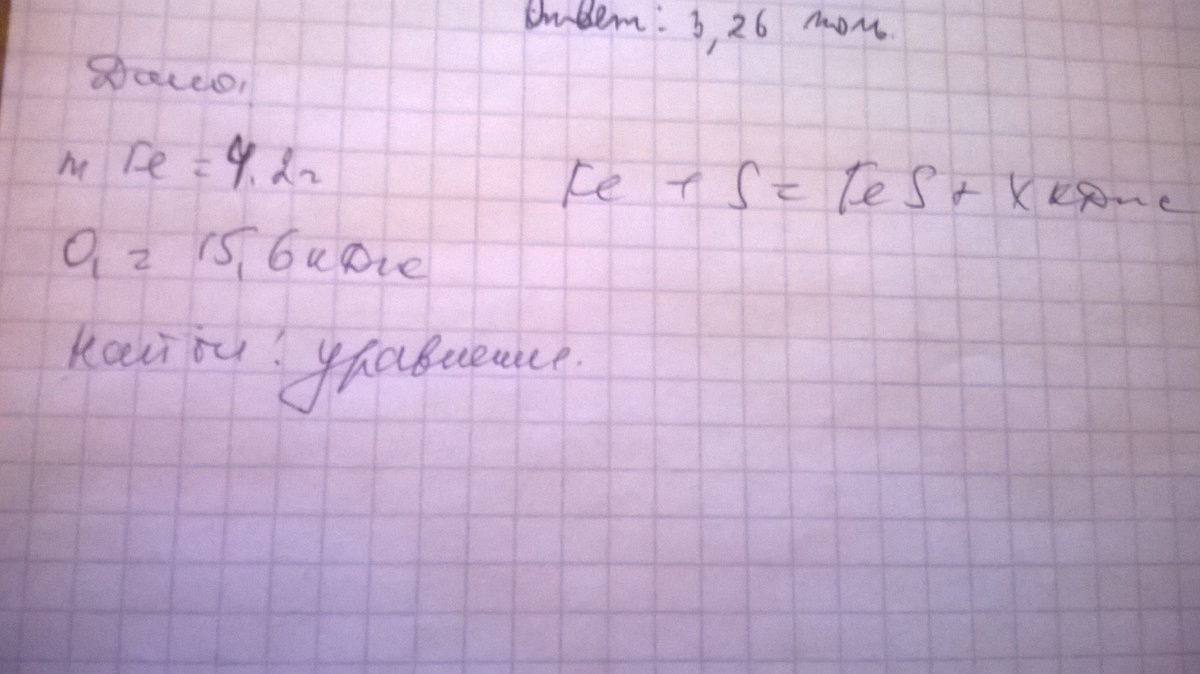 Ответ: 3,26 моль.
Дано:
m Fe = 4.2г
Fe + S = FeS + X кДж
Q, = 15,6 кДж
Найти: уравнение.